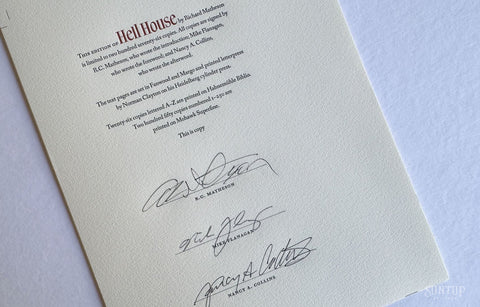 THIS EDITION OF Hell House by Richard Matheson
is limited to two hundred seventy-six copies. All copies are signed by
R.C. Matheson, who wrote the introduction; Mike Flanagan,
who wrote the foreword; and Nancy A. Collins,
who wrote the afterword.
The text pages are set in Fusswood and Margo and printed letterpress
by Norman Clayton on his Heidelberg cylinder press.
Twenty-six copies lettered A–Z are printed on Hahnemühle Biblio.
Two hundred fifty copies numbered 1–250 are
printed on Mohawk Superfine.
This is copy
R.C. MATHESON
MIKE FLANAGAN
Nancy A Collins
NANCY A. COLLINS
SUNTUP